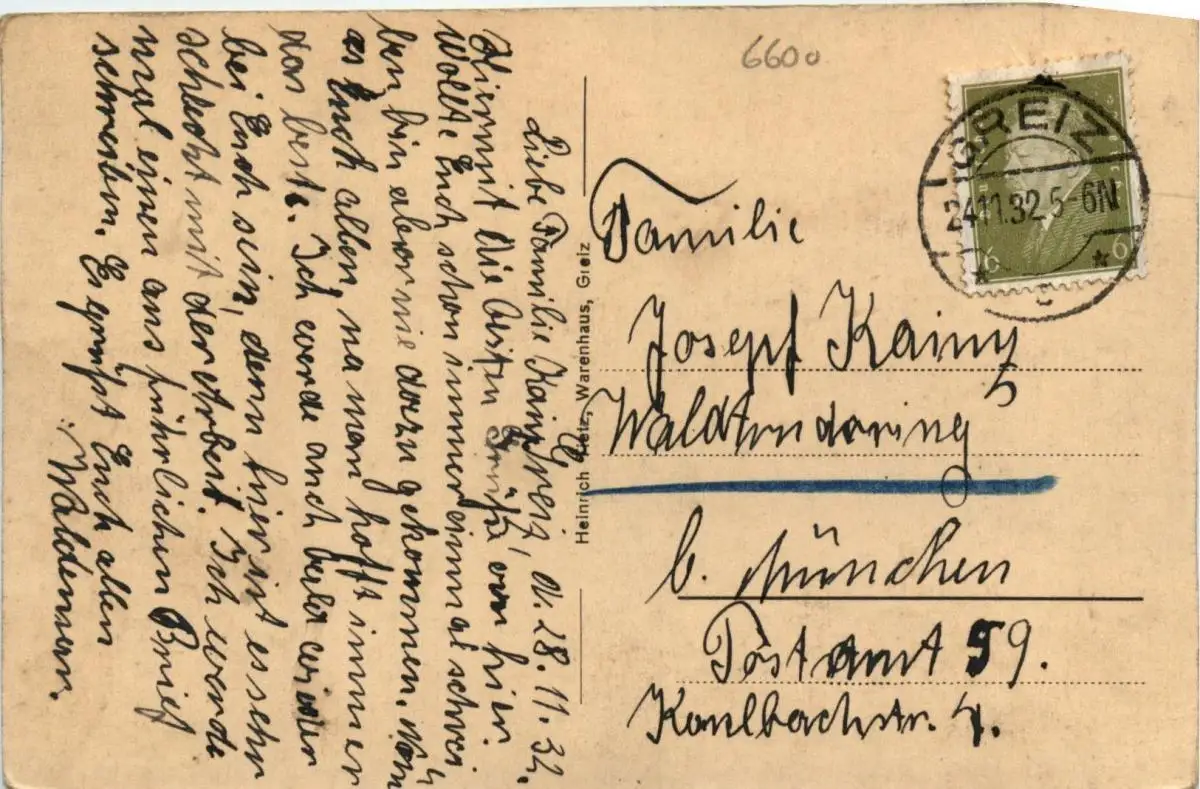 Greiz, d. 28.11.32.
Liebe Familie Kainz
Hiermit die besten Grüße, von hier
Wollte Euch schon immer einmal schrei
ben, bin aber nie dazu gekommen. Wie
es Euch allen, na man hofft immer
das beste. Ich werde auch bald wieder
bei Euch sein, denn hier ist es sehr
schlecht mit der Arbeit. Ich werde
mal einen ausführlichen Brief
schreiben. Es grüßt Euch allen
Waldemar.
Heinrich Tietz, Warenhaus, Greiz
6600
GREIZ
24.11.32.5-6N
6 6
Familie
Josepf Kainz
Waldtrudering
b. München
Postamt 59.
Kaulbachstr. 4.